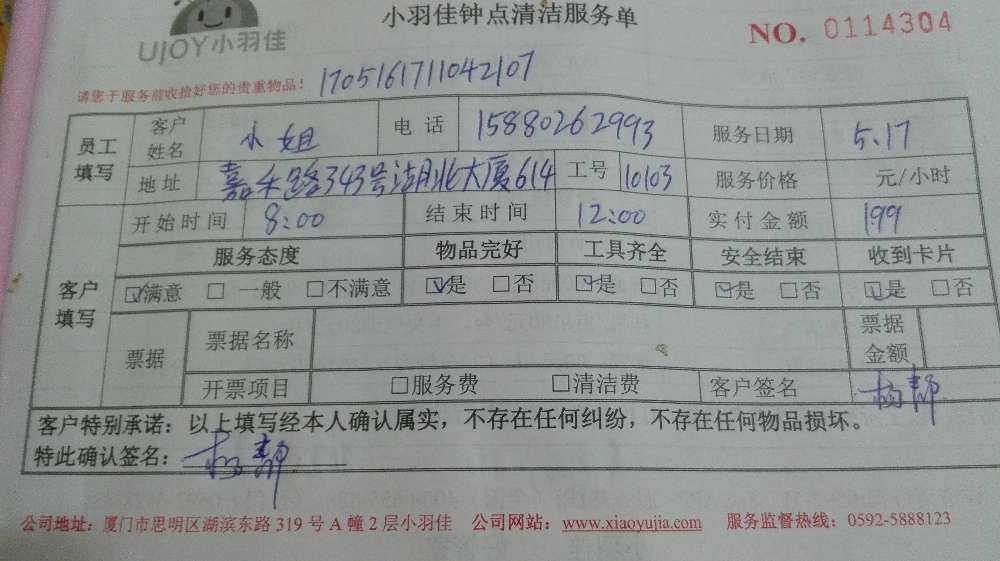 UJOY小羽佳
小羽佳钟点清洁服务单
NO. 0114304
请您于服务前收拾好您的贵重物品! 1705161711042107
员工填写 客户姓名 小姐 电话 15880262993 服务日期 5.17
地址 嘉禾路343号湖北大厦614 工号 10103 服务价格 元/小时
客户填写 开始时间 8:00 结束时间 12:00 实付金额 199
服务态度 物品完好 工具齐全 安全结束 收到卡片
☑满意 □一般 □不满意 ☑是 □否 ☑是 □否 ☑是 □否 ☑是 □否
票据 票据名称 票据金额
开票项目 □服务费 □清洁费 客户签名 杨静
客户特别承诺:以上填写经本人确认属实,不存在任何纠纷,不存在任何物品损坏。
特此确认签名: 杨静
公司地址:厦门市思明区湖滨东路319号A幢2层小羽佳 公司网站:www.xiaoyujia.com 服务监督热线:0592-5888123